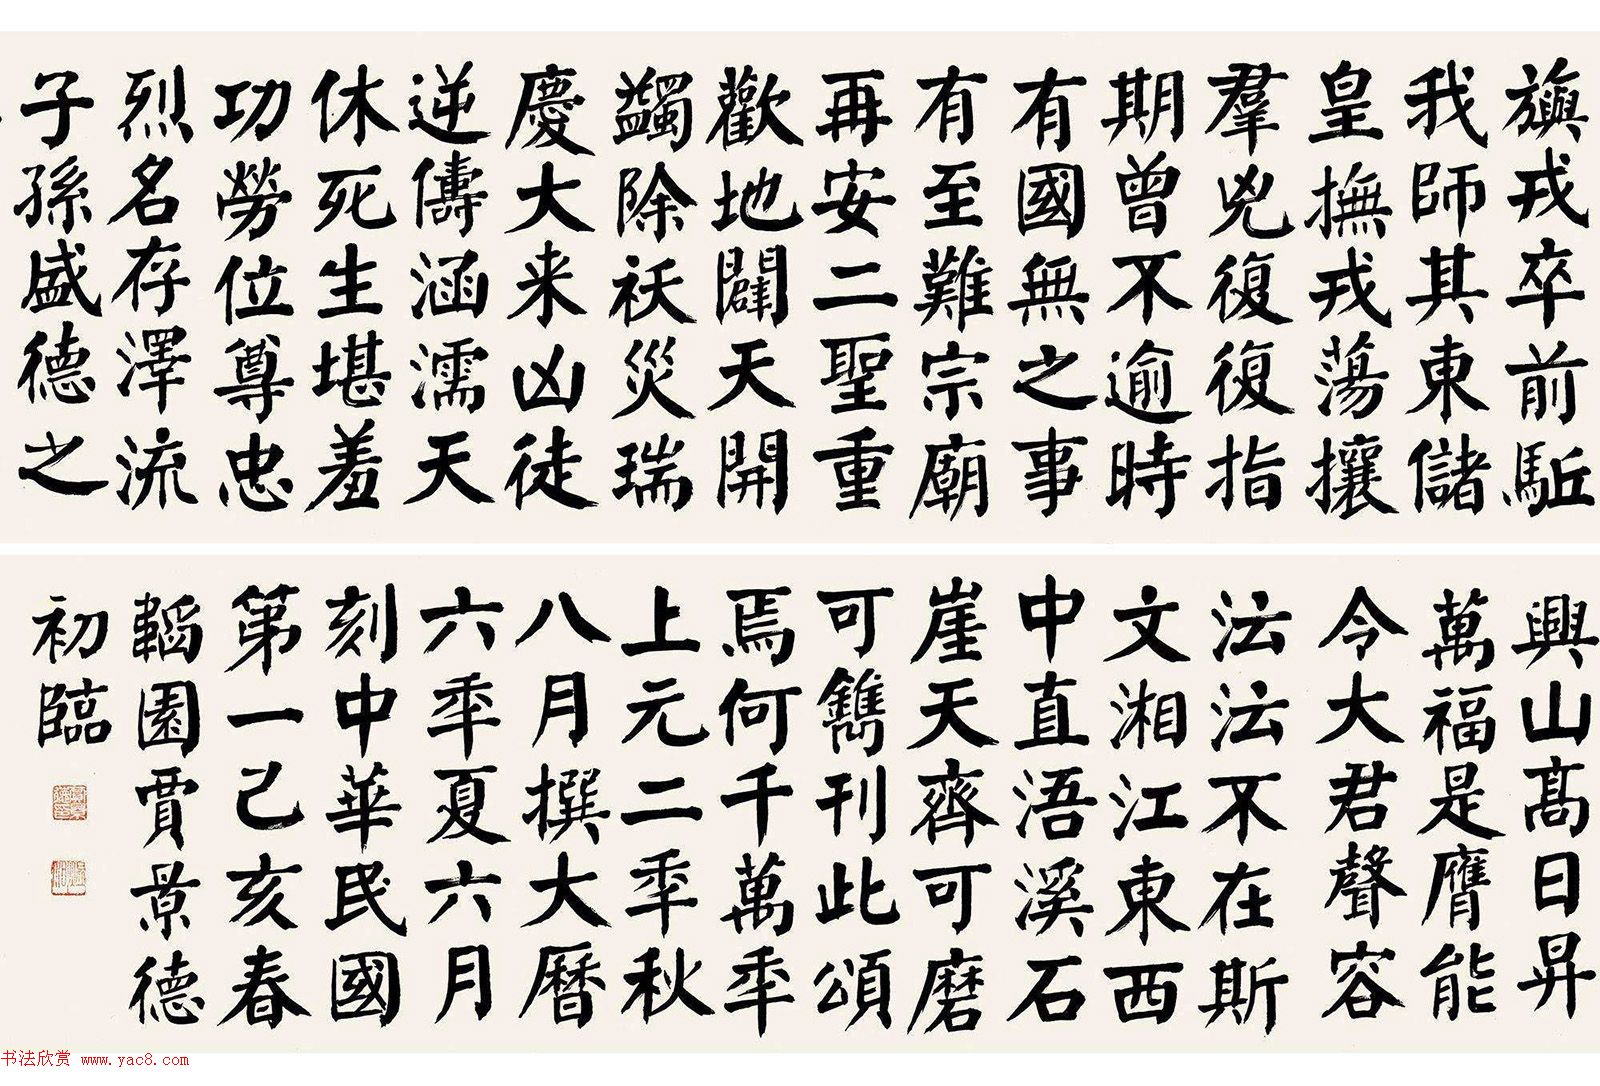 旟戎卒前駈
我師其東儲
皇撫戎蕩攘
羣兇復復指
期曾不逾時
有國無之事
有至難宗廟
再安二聖重
歡地闢天開
蠲除祅災瑞
慶大来凶徒
逆儔涵濡天
休死生堪羞
功勞位尊忠
烈名存澤流
子孫盛德之
興山髙日昇
萬福是膺能
令大君聲容
沄沄不在斯
文湘江東西
中直浯溪石
崖天齊可磨
可鐫刊此頌
焉何千萬年
上元二年秋
八月撰大曆
六年夏六月
刻中華民國
第一己亥春
韜園賈景德
初臨
书法欣赏 www.yac8.com